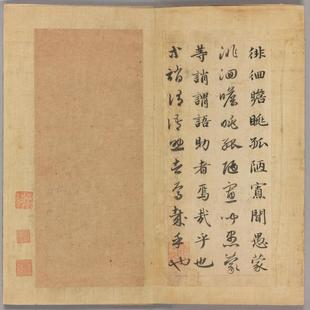 徘徊瞻眺孤陋寡聞愚蒙
徘徊瞻眺孤陋寡聞愚蒙
等誚謂語助者焉哉乎也
等誚謂語助者焉哉乎也